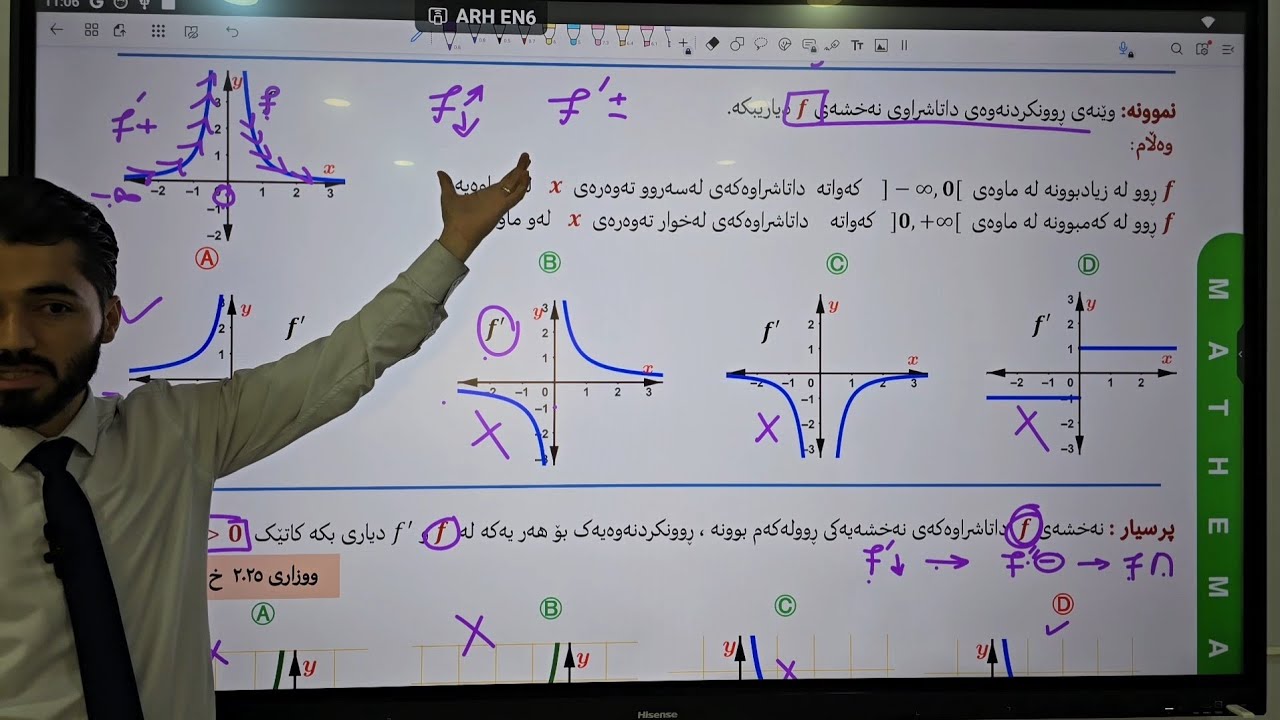 11:06
ARH EN6
نموونە: وێنەی ڕوونکردنەوەی داتاشراوی نەخشەی f دیاریبکە.
وەڵام:
f ڕوو لە زیادبوونە لە ماوەی ]−∞, 0[ کەواتە داتاشراوەکەی لەسەروو تەوەرەی x
f ڕوو لە کەمبوونە لە ماوەی ]0, +∞[ کەواتە داتاشراوەکەی لەخوار تەوەرەی x لەو
f'+
f
f
f' + −
y
3
2
1
−2 −1 0 1 2 3 x
−1
−2
−∞
A B C D
f' y 2 1
f' y 3 2 1 −2 −1 0 1 2 3 x −1 −2 −3
f' y 2 1 −2 −1 0 1 2 3 x −1 −2 −3
f' y 3 2 1 −2 −1 0 1 2 x −1 −2 −3
پرسیار : نەخشەی f داتاشراوەکەی نەخشەیەکی ڕوولەکەم بوونە ، ڕوونکردنەوەیەک بۆ هەر یەکە لە f و f' دیاری بکە کاتێک > 0
f'↓ → f'' − → f ∩
ووزاری ٢٠٢٥ خ
A B C D
y y y y
MATHEMA
Hisense